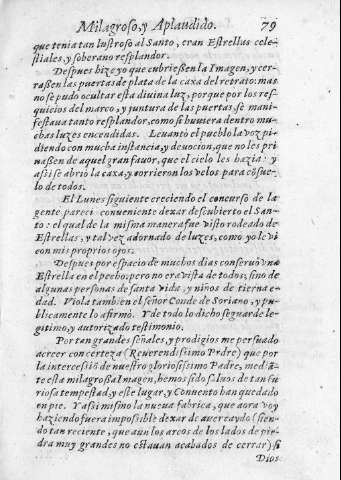 Milagroso, y Aplaudido. 79
que tenia tan lustroso al Santo, eran Estrellas cele-
stiales, y soberano resplandor.
Despues hize yo que cubrießen la Imagen, y cer-
raßen las puertas de plata de la caxa del retrato: mas
no se pudo ocultar esta divina luz, porque por los res-
quicios del marco, y juntura de las puertas, se mani-
festaua tanto resplandor, como si huviera dentro mu-
chas luzes encendidas. Leuantò el pueblo la voz pi-
diendo con mucha instancia, y deuocion, que no les pri
uaßen de aquel gran fauor, que el cielo les hazia: y
assi se abrio la caxa, y corrieron los velos para cõsue-
lo de todos.
El Lunes siguiente creciendo el concurso de la
gente pareci conueniente dexar descubierto el San-
to: el qual de la misma manera fue visto rodeado de
Estrellas, y tal vez adornado de luzes, como yo le vi
con mis proprios ojos.
Despues por espacio de muchos dias conseruò vna
Estrella en el pecho: pero no era vista de todos, sinò de
algunas personas de santa vida, y niños de tierna e-
dad. Viola tambien el señor Conde de Soriano, y pu-
blicamente lo afirmò. Y de todo lo dicho se guarde le-
gitimo, y autorizado testimonio.
Por tan grandes señales, y prodigios me persuado
a creer con certeza (Reuerendissimo Prdre) que por
la intercessiõ de nuestro gloriosissimo Padre, mediã-
te esta milagroßa Imagen, hemos sido saluos de tan fu-
riosa tempestad, y este lugar, y Conuento han queda-
do en pie. Y assi mismo la nueua fabrica, que aora voy
haziendo fuera imposible dexar de auer caydo (sien-
do tan reciente, que aùn los arcos de los lados de pie-
dra muy grandes no estauan acabados de cerrar) si
Dios